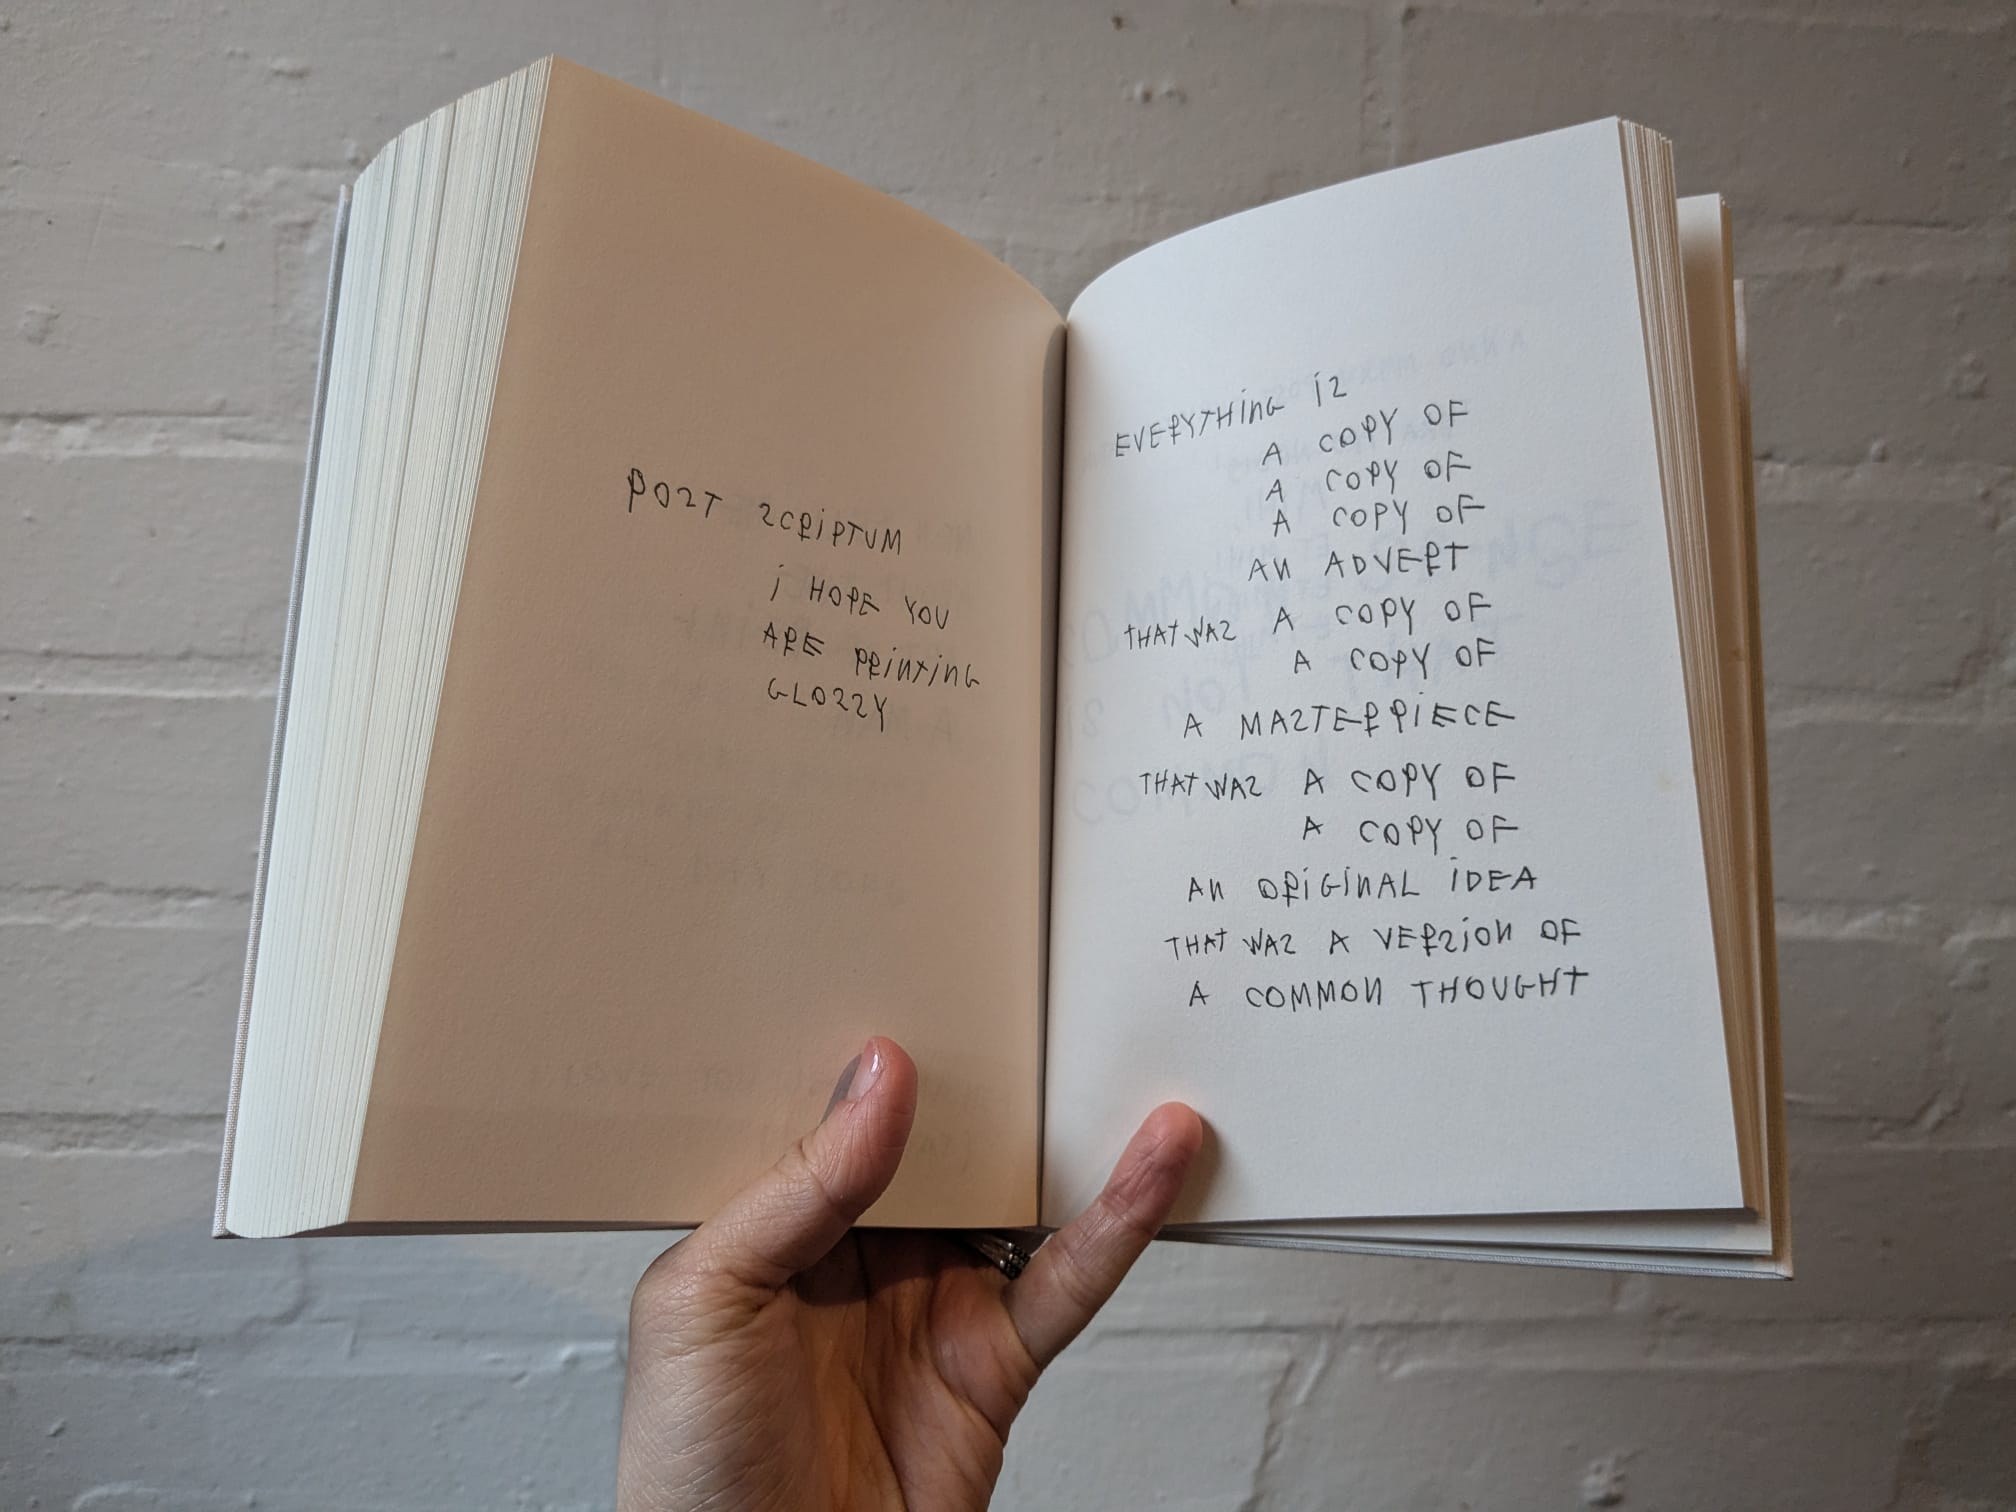 POST SCRIPTUM
i HOPE YOU
ARE PRiNTiNG
GLOSSY
EVERYTHiNG iS
A COPY OF
A COPY OF
A COPY OF
AN ADVERT
THAT WAS A COPY OF
A COPY OF
A MASTERPiECE
THAT WAS A COPY OF
A COPY OF
AN ORiGiNAL iDEA
THAT WAS A VERSiON OF
A COMMON THOUGHT